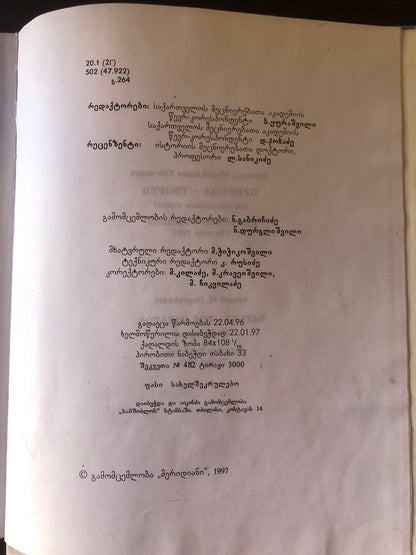 20.1 (2Г)
502 (47.922)
გ.264
რედაქტორები: საქართველოს მეცნიერებათა აკადემიის
წევრ-კორესპონდენტი
საქართველოს მეცნიერებათა აკადემიის
წევრ-კორესპონდენტი
რეცენზენტი: ისტორიის მეცნიერებათა დოქტორი,
პროფესორი ლ.სანიკიძე
გამომცემლობის რედაქტორები: ნ.გაბრიჩიძე
ნ.დურგლიშვილი
მხატვრული რედაქტორი მ.ჭიჭიკოშვილი
ტექნიკური რედაქტორი კ. რუსიძე
კორექტორები: მ.კილაძე, მ.კრავეიშვილი,
მ. ჩიკვილაძე
გადაეცა წარმოებას 22.04.96
ხელმოწერილია დასაბეჭდად 22.01.97
ქაღალდის ზომა 84x108 1/16
პირობითი ნაბეჭდი თაბახი 33
შეკვეთა № 482 ტირაჟი 3000
ფასი სახელშეკრულებო
დაიბეჭდა და აიკინძა გამომცემლობა
„სამშობლოს" სტამბაში. თბილისი, კოსტავას 14
© გამომცემლობა „მერიდიანი", 1997